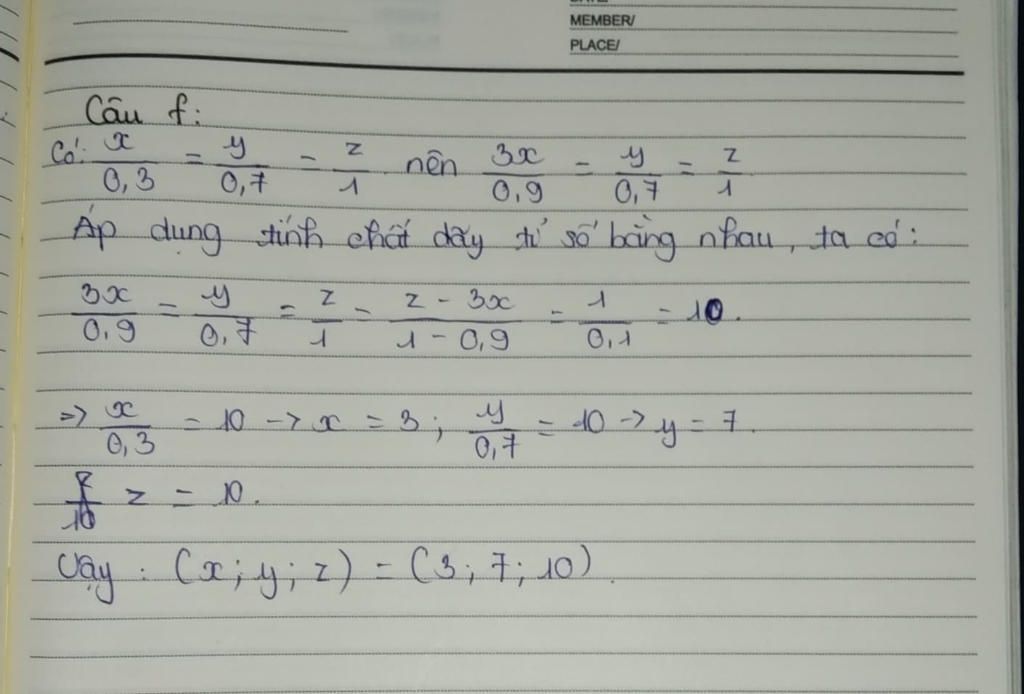 MEMBER/
PLACE/
Câu f:
Có: x/0,3 = y/0,7 = z/1 nên 3x/0,9 = y/0,7 = z/1
Áp dụng tính chất dãy tỉ số bằng nhau, ta có:
3x/0,9 = y/0,7 = z/1 = z - 3x/1 - 0,9 = 1/0,1 = 10.
=> x/0,3 = 10 -> x = 3; y/0,7 = 10 -> y = 7.
z = 10.
Vậy: (x; y; z) = (3; 7; 10).